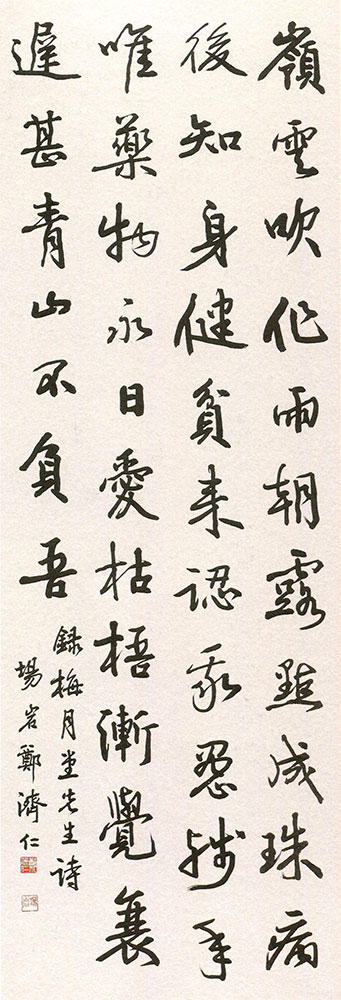 嶺雲吹作雨朝露點成珠病
後知身健貧來認我愚殘年
唯藥物永日愛枯梧漸覺衰
遲甚青山不負吾
録梅月堂先生詩
岩鄭濟仁